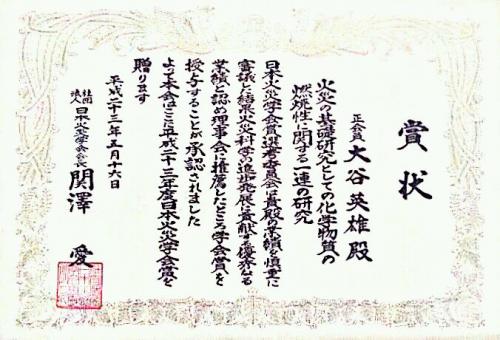 賞状
正会員 大谷英雄殿
火災の基礎研究としての化学物質の
燃焼性に関する一連の研究
日本火災学会賞選考委員会は貴殿の業績を慎重に
審議した結果火災科学の進歩発展に貢献する優秀なる
業績と認め理事会に推薦したところ学会賞を
授与することが承認されました
よって本会はここに平成二十三年度日本火災学会賞を
贈ります
平成二十三年五月十六日
社団法人 日本火災学会会長 関澤 愛